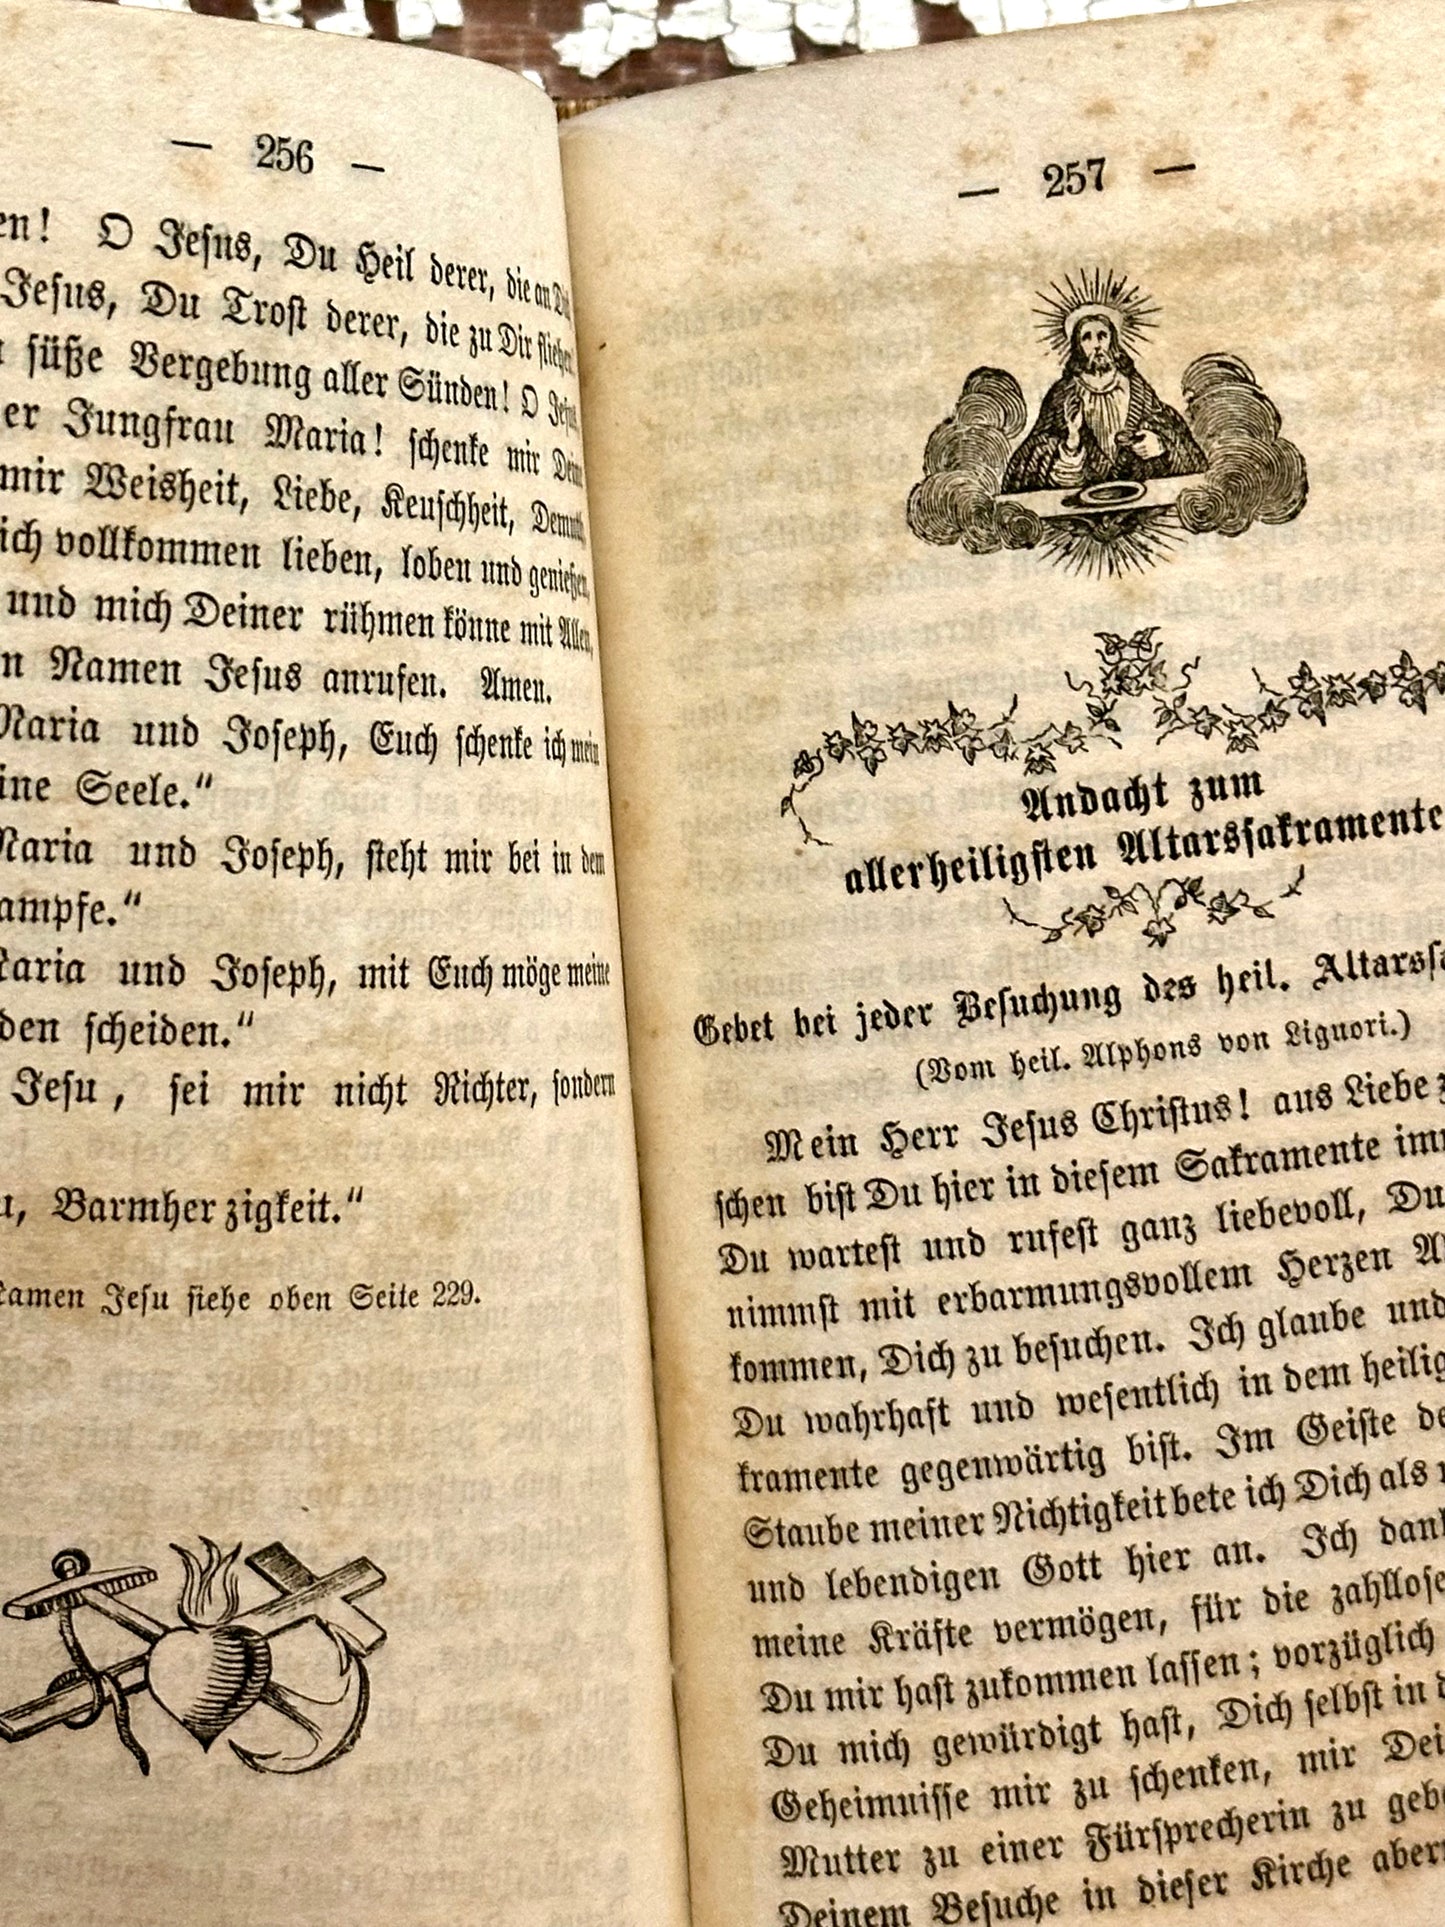 — 256 —
O Jesus, Du Heil derer, die an
Jesus, Du Trost derer, die zu Dir fliehen,
süße Vergebung aller Sünden! O Jesus,
er Jungfrau Maria! schenke mir Deine
mir Weisheit, Liebe, Keuschheit, Demuth,
ich vollkommen lieben, loben und genießen,
und mich Deiner rühmen könne mit Allen,
n Namen Jesus anrufen. Amen.
Maria und Joseph, Euch schenke ich mein
ine Seele.“
Maria und Joseph, steht mir bei in dem
ampfe.“
Maria und Joseph, mit Euch möge meine
den scheiden.“
Jesu, sei mir nicht Richter, sondern
u, Barmherzigkeit.“
Namen Jesu siehe oben Seite 229.
— 257 —
Andacht zum
allerheiligsten Altarssakramente
Gebet bei jeder Besuchung des heil. Altarssa
(Vom heil. Alphons von Liguori.)
Mein Herr Jesus Christus! aus Liebe z
schen bist Du hier in diesem Sakramente imm
Du wartest und rufest ganz liebevoll, Du
nimmst mit erbarmungsvollem Herzen A
kommen, Dich zu besuchen. Ich glaube und
Du wahrhaft und wesentlich in dem heilig
kramente gegenwärtig bist. Im Geiste de
Staube meiner Nichtigkeit bete ich Dich als
und lebendigen Gott hier an. Ich dank
meine Kräfte vermögen, für die zahllose
Du mir hast zukommen lassen; vorzüglich
Du mich gewürdigt hast, Dich selbst in d
Geheimnisse mir zu schenken, mir Dei
Mutter zu einer Fürsprecherin zu gebe
Deinem Besuche in dieser Kirche aber